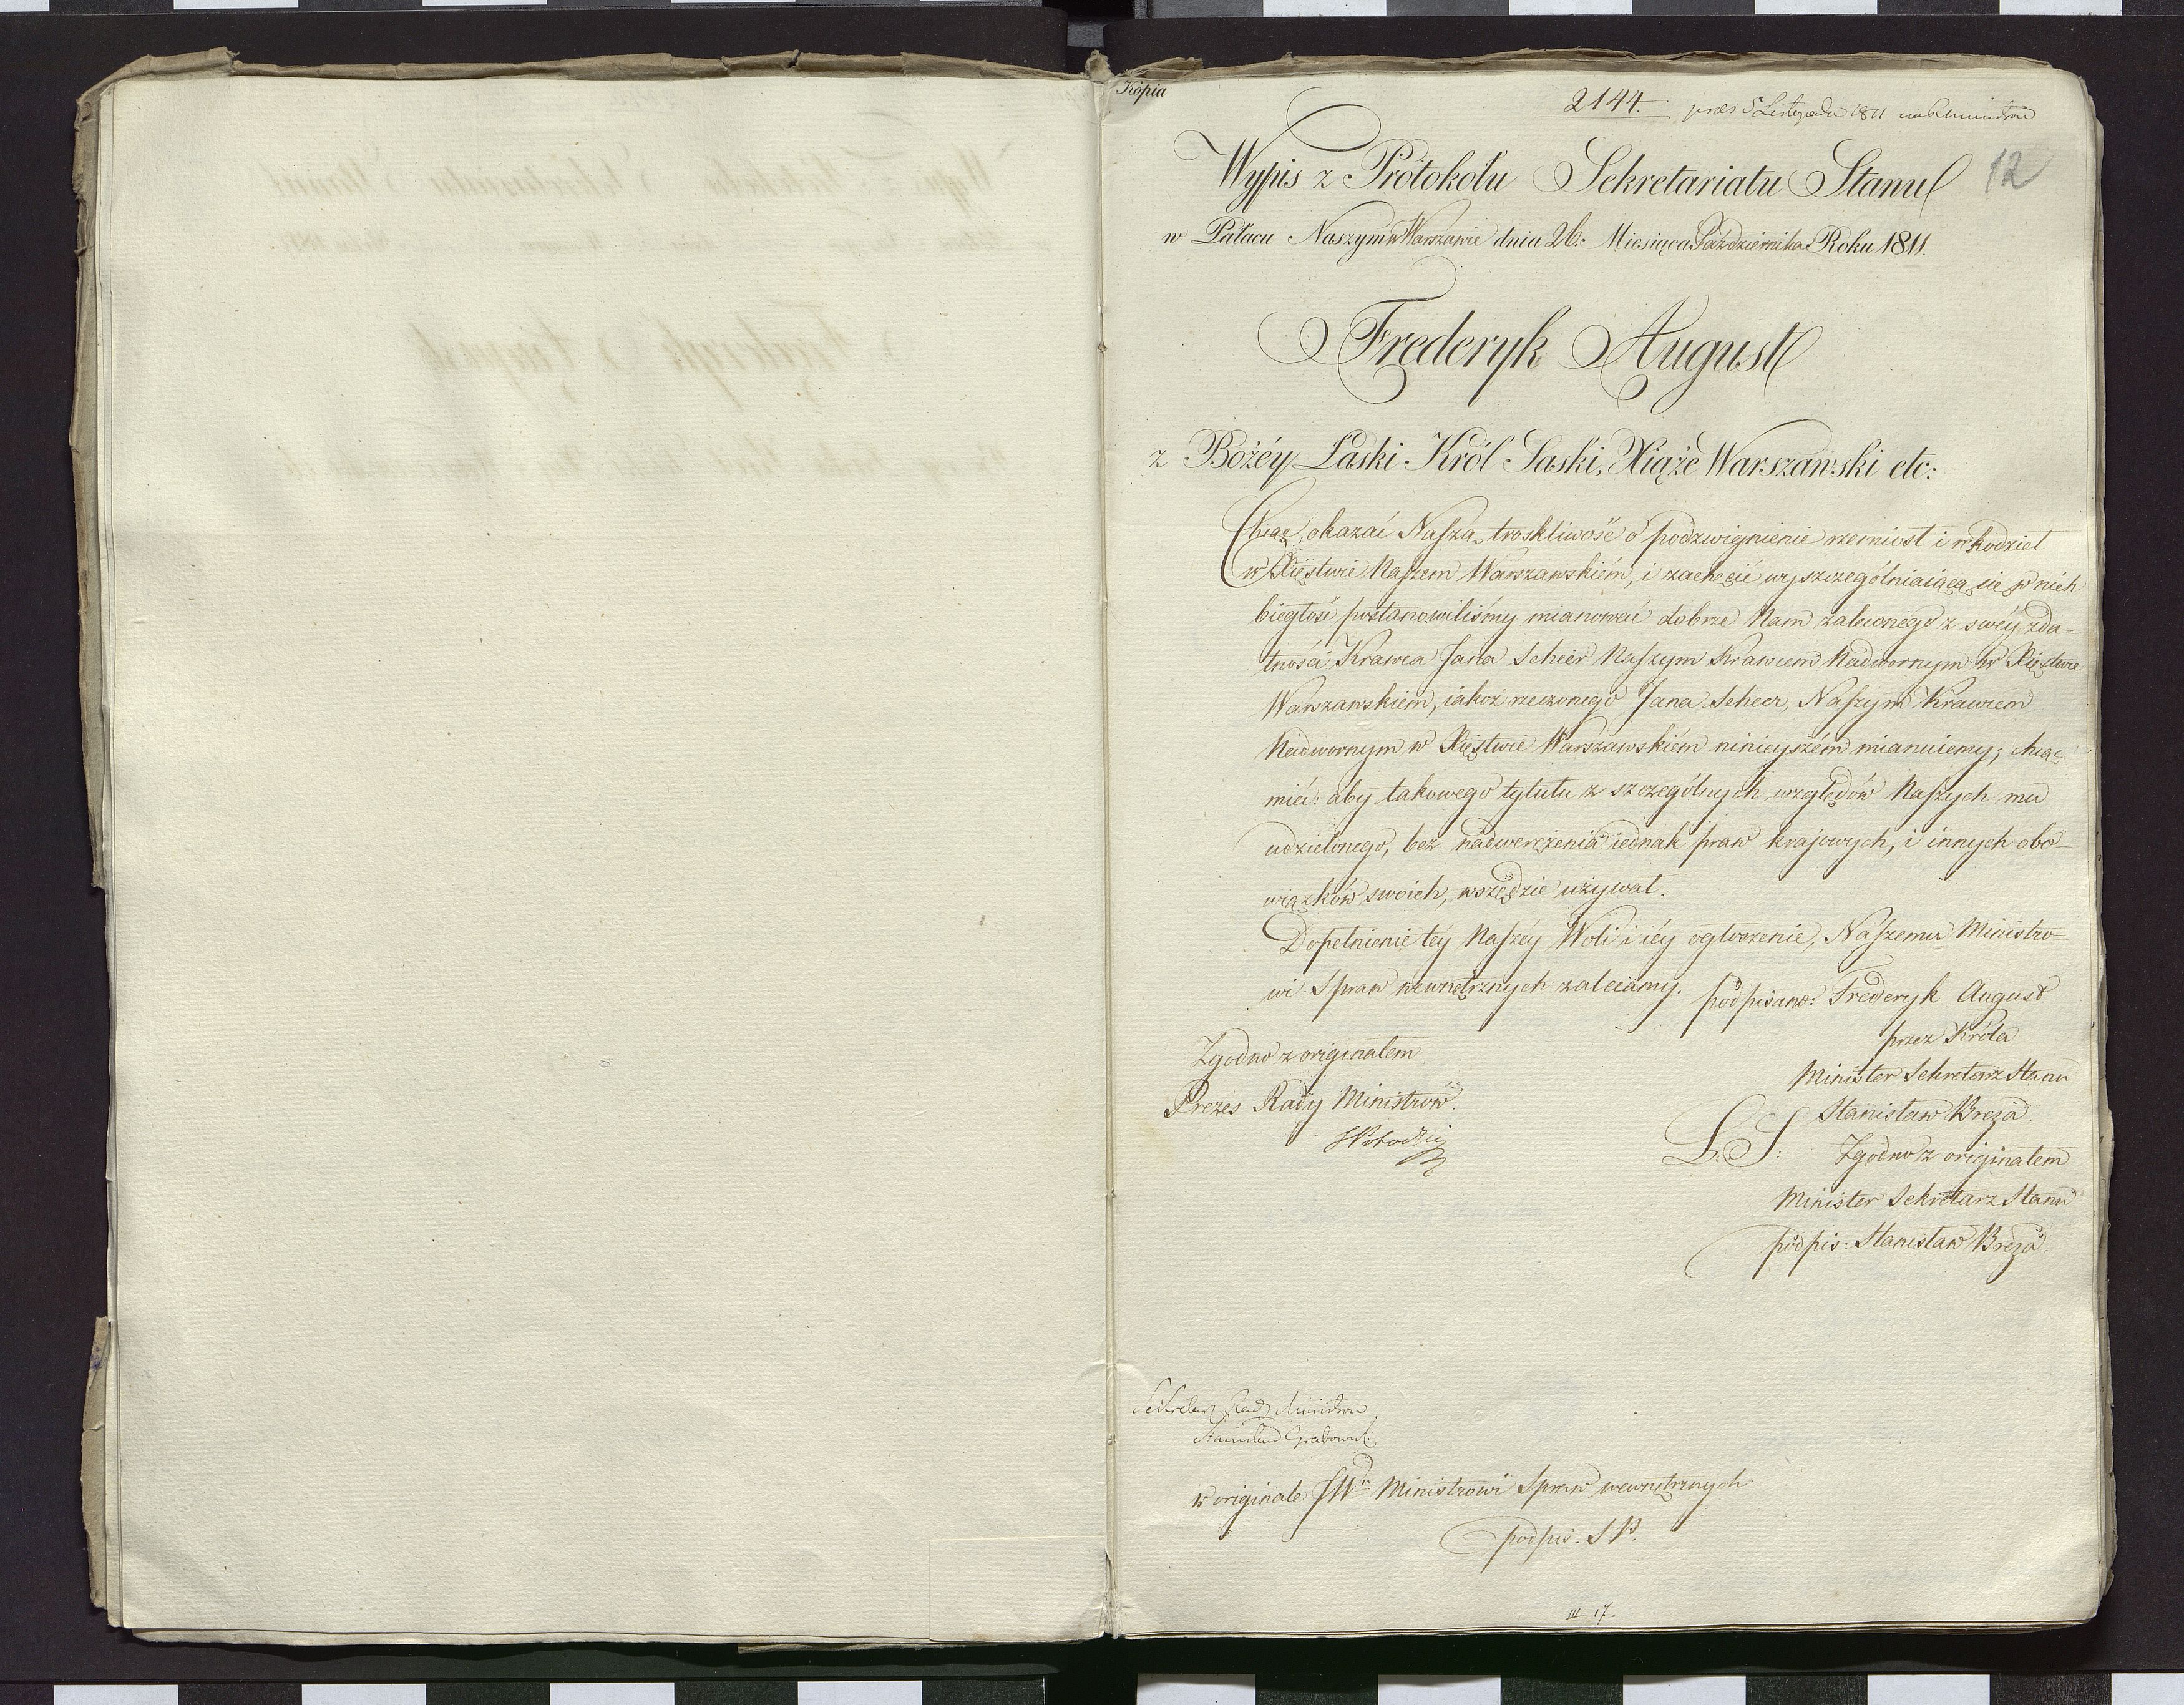 Kopia
2144. præs 5 Listopada 1811 na R. Ministrów
12
Wypis z Protokołu Sekretariatu Stanu
w Pałacu Naszym w Warszawie dnia 26. Miesiąca Października Roku 1811.
Frederyk August
z Bożéy Łaski Król Saski, Xiąże Warszawski etc:
Chcąc okazać Naszą troskliwość o podzwignienie rzemiosł i rękodzieł
w Xięstwie Naszem Warszawskiém, i zachęcić wyszczególniaiącą się w nich
biegłość postanowiliśmy mianować dobrze Nam zaleconego z swéy zda-
tności Krawca Jana Scheer Naszym Krawcem Nadwornym w Xięstwie
Warszawskiem, iakoż rzeczonego Jana Scheer, Naszym Krawcem
Nadwornym w Xięstwie Warszawskiém ninieyszém mianuiemy; chcąc
mieć: aby takowego tytułu z szczególnych względów Naszych mu
udzielonego, bez nadwerężenia iednak praw krajowych, i innych obo-
wiązków swoich, wszędzie używał.
Dopełnienie téy Naszéy Woli i iéy ogłoszenie, Naszemu Ministro-
wi Spraw wewnętrznych zalecamy.
podpisano: Frederyk August
przez Króla
Minister Sekretarz Stanu
Stanisław Breza.
L. S: Zgodno z originałem
Minister Sekretarz Stanu
podpis: Stanisław Breza.
Zgodno z originałem
Prezes Rady Ministrów.
SPotocki
Sekretarz Rady Ministrów
Stanisław Grabowski
w originale JW. Ministrowi Spraw wewnętrznych
podpis. S. P.
III 17.